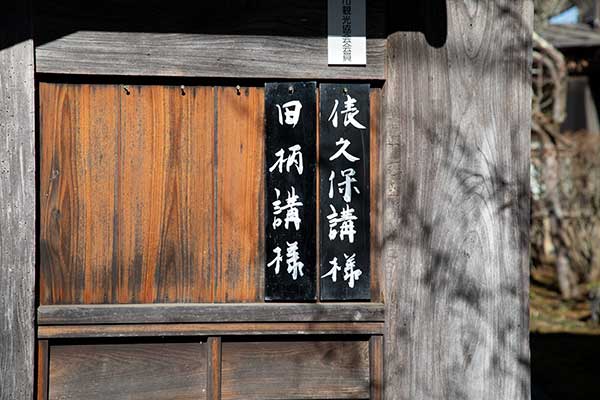 市観光協会会員
俵久保講様
田柄講様